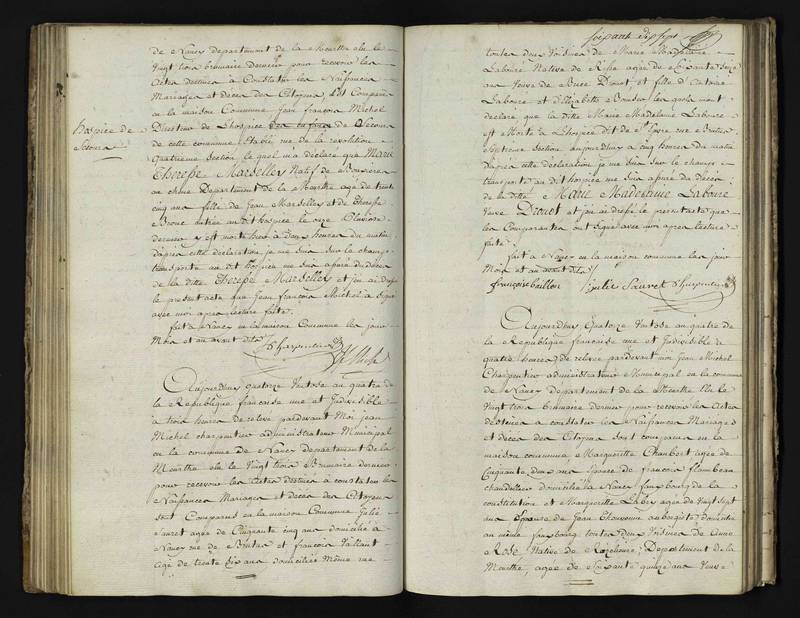 de Nancy departement de la Meurthe elu le
Vingt trois brumaire dernier pour recevoir les
Actes destinés à Constater les Naissances
Mariages et décès des Citoyens, Est Comparu
en la maison Commune Jean françois Michel
Hospice de
Secours
Directeur de L'hospice des enfans de Secours
de cette commune, Etabli rue de la revolution
quatrieme Section lequel m'a déclaré que Marie
Therese Marseller Natif de
Departement de la Meurthe agé de trente
cinq ans fille de Jean Marseller et de Therese
entrée au dit hospice le onze Pluviose
dernier y est morte hier à deux heures du matin
d'apres cette déclaration je me suis sur le champ
transporté au dit hospice me suis assuré du décès
de la ditte Therese Marseller et j'en ai dressé
le present acte que Jean françois Michel a Signé
avec moi apres lecture faite.
fait à Nancy en la maison Commune les jour
Mois et an avant dits
Charpentier
Aujourdhuy quatorze Ventose an quatre de
la Republique francaise une et Indivisible
à trois heures de relevé pardevant Moi jean
Michel charpentier administrateur Municipal
en la commune de Nancy departement de la
Meurthe elu le Vingt trois Brumaire dernier
pour recevoir les Actes destinés à constater les
Naissances Mariages et décès des Citoyens
sont Comparus en la maison Commune Julie
Sauret agée de Cinquante cinq ans domicilié à
Nancy rue de et francois Vaillant
agé de trente six ans domiciliés Même rue
soixante dix sept
toutes deux Voisines de Marie Madelaine
Laboure Native de agée de Soixante Seize
ans Veuve de Drouot et fille d'Antoine
Laboure et d'Elizabeth lesquels mont
déclaré que la ditte Marie Madelaine Laboure
est Morte à L'hospice dit de St
Section aujourdhuy a cinq heures du matin
d'apres cette déclaration je me suis sur le champ
transporté au dit hospice me suis assuré du décès
de la ditte Marie Madelaine Laboure
Veuve Drouot et j'en ai dressé le present acte que
les Comparantes ont Signé avec moi apres lecture
faite.
fait a Nancy en la maison commune les jour
Mois et an avant dits
françoise baillon Julie Sauret Charpentier
Aujourdhuy Quatorze Ventose an quatre de
la Republique francaise une et Indivisible à
quatre heures de relevé pardevant moi Jean Michel
Charpentier administrateur Municipal en la commune
de Nancy departement de la Meurthe Elu le
Vingt trois Brumaire dernier pour recevoir les Actes
destinés a constater les Naissances Mariages
et décès des Citoyens sont comparus en la
maison commune Marguerite Chaubert agée de
Cinquante deux ans Epouse de francois flambeau
chandellier domiciliée à Nancy fauxbourg de la
constitution et Marguerite agée de Vingt Sept
ans Epouse de Jean aubergiste Domicilié
au même fauxbourg toutes deux Voisines de Anne
Rose Native de Departement de la
Meurthe, agée de Soixante quinze ans Veuve